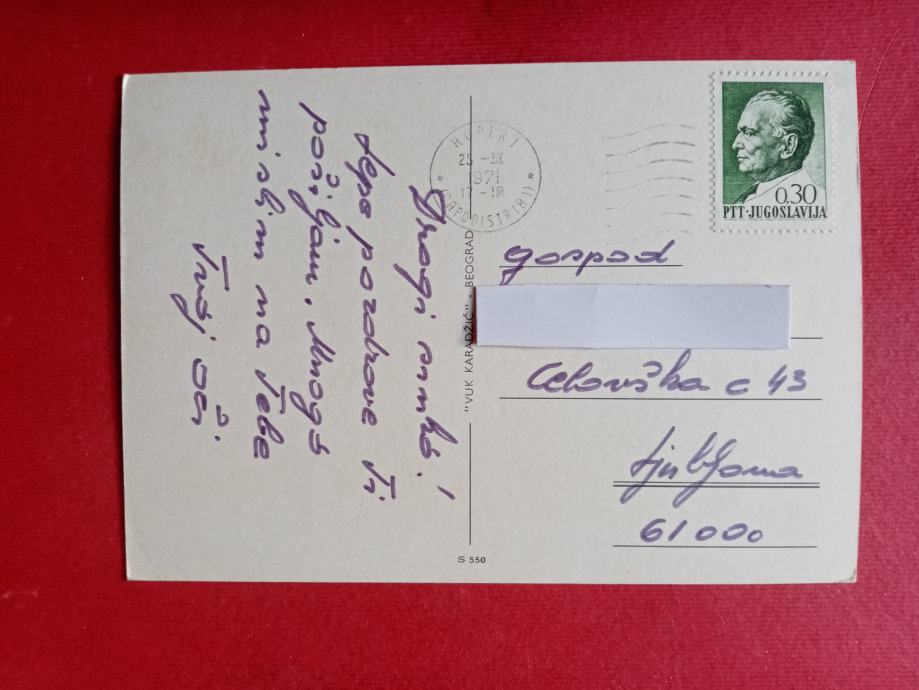 Dragi sinko!
Lepe pozdrave Ti
pošiljam. Mnogo
mislim na Tebe
Tvoj oči
"VUK KARADŽIĆ" - BEOGRAD
S 550
KOPER 1
25 -III
1971
17-18
(CAPODISTRIA 1)
0,30
PTT·JUGOSLAVIJA
gospod
Celovška c 43
Ljubljana
61000